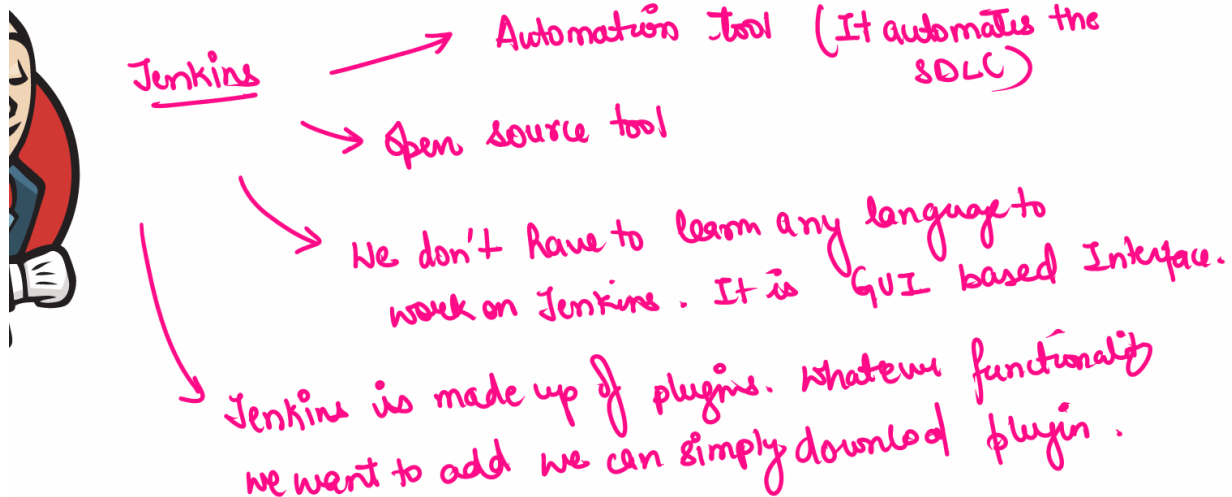 Jenkins
Automation tool (It automates the
SDLC)
Open source tool
We don't have to learn any language to
work on Jenkins. It is GUI based Interface.
Jenkins is made up of plugins. Whatever functionality
we want to add we can simply downlod plugin.